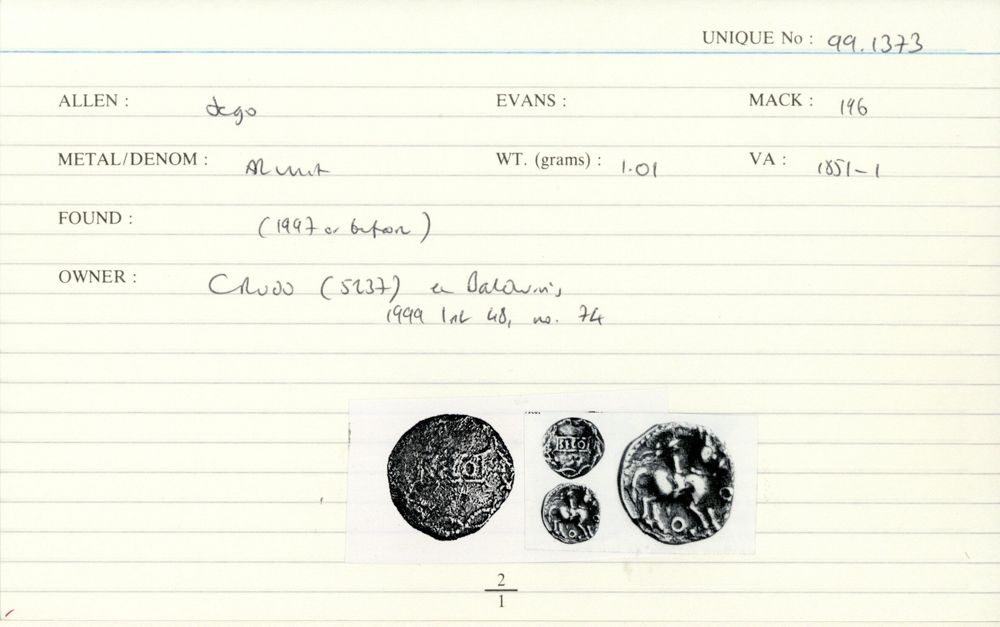 UNIQUE No : 99.1373
ALLEN : dego EVANS : MACK : 196
METAL/DENOM : AR unit WT. (grams) : 1.01 VA : 1851-1
FOUND : (1997 or before)
OWNER : CRUDD (5237) ex Baldwin's
1999 list 48, no. 74
2
1